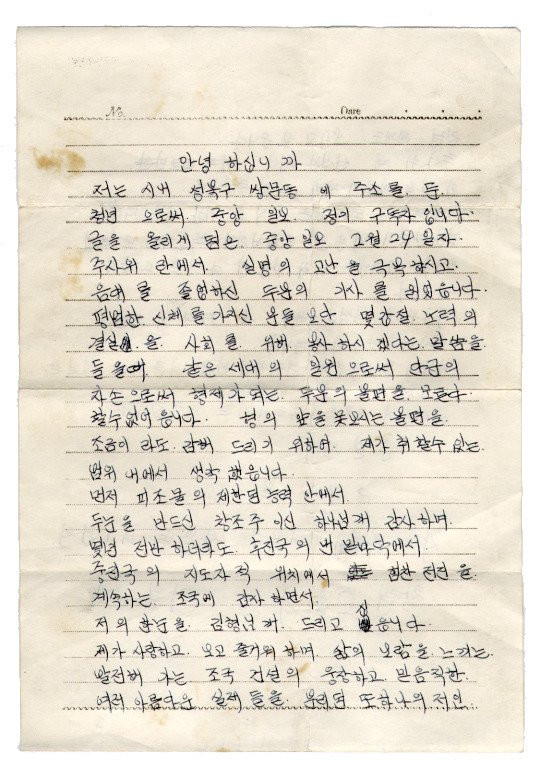 No. Date
안녕 하십니 까
저는 시내 성북구 쌍문동 에 주소를 둔
청년 으로써 중앙 일보 정의 구독자 입니다.
글을 올리게 됨은 중앙일보 2월 24일자.
주사위 란에서. 실명의 고난을 극복하시고.
음대를 졸업하신 두분의 기사를 읽었읍니다.
평범한 신체를 가지신 분들 보단 몇갑절 노력의
결실을 사회를 위해 봉사 하시 겠다는 말씀을
들을때 같은 세대의 일원 으로써 단군의
자손으로써 형제가 되는 두분의 불편을 모른다
할수 없어 읍니다. 형의 앞을 못보시는 불편을
조금이 라도 덜해 드리기 위하여 제가 취할수 있는
범위 내에서 생각 했읍니다.
먼저 피조물의 제한된 능력 안에서
두눈을 만드신 창조주 이신 하나님께 감사하며.
몇년 전만 하더라도 후진국의 맨 밑바닥에서.
중진국의 지도자적 위치에서 힘찬 전진을
계속하는 조국에 감사 하면서.
저의 한눈을 김형님께 드리고 싶읍니다
제가 사랑하고 보고 즐거워 하며 삶의 보람을 느끼는
발전해 가는 조국 건설의 웅장하고 믿음직한
여러 아름다운 실적 들을 우리의 또하나의